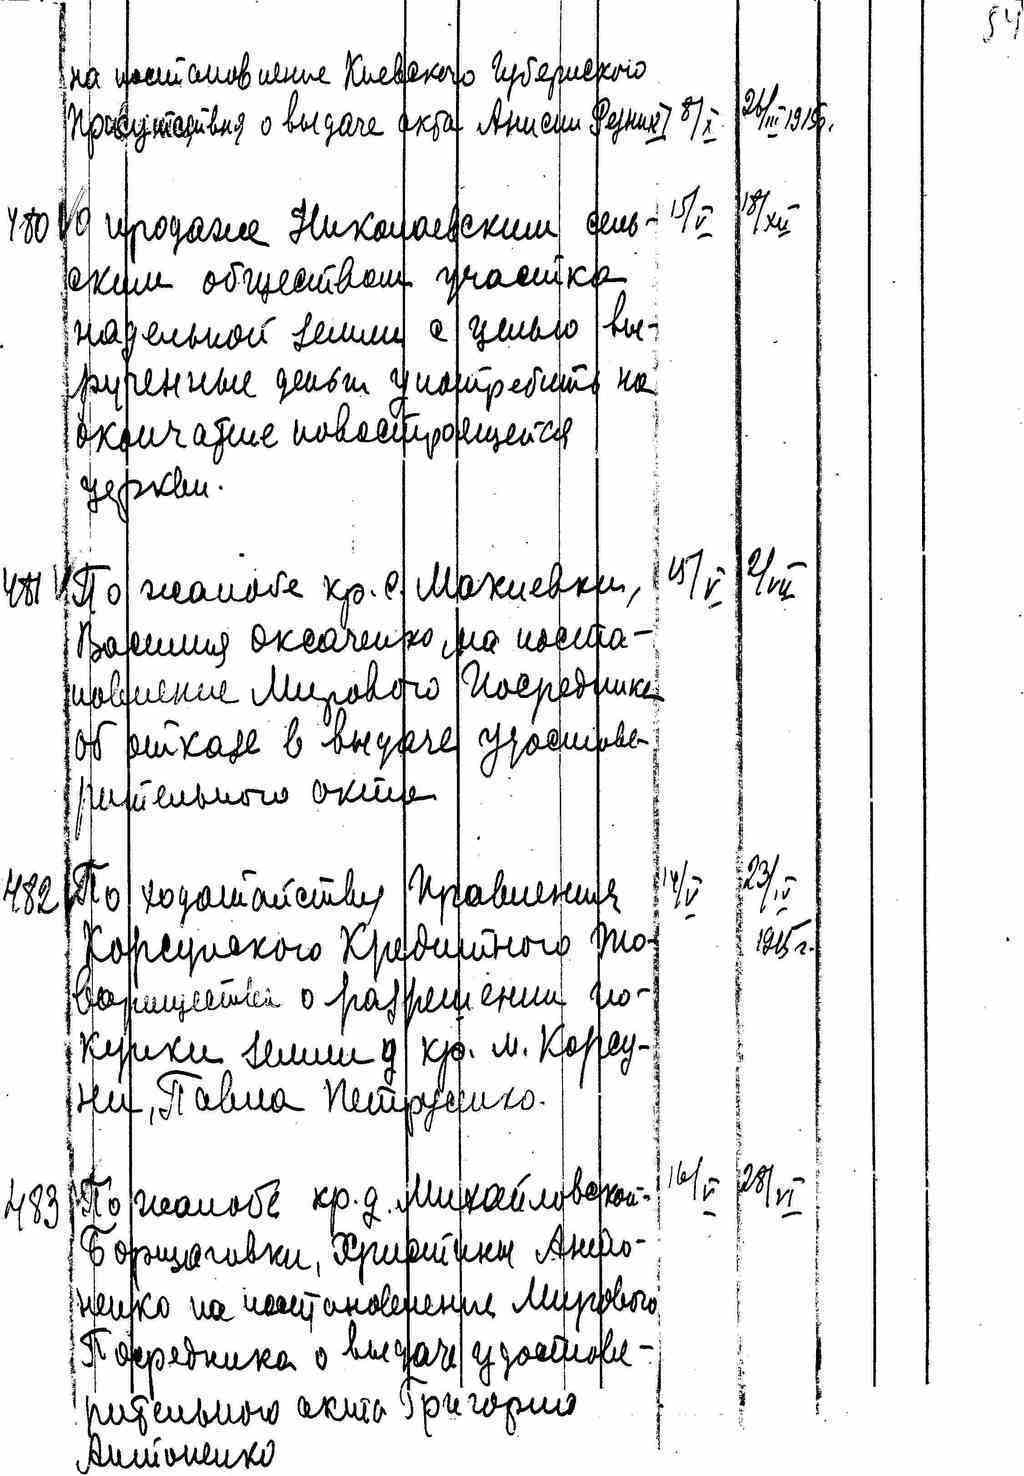 54
на постановление Киевского Губернского
Присутствия о выдаче акта Анисии Резник 8/X 26/III 1915г.
480 О продаже Николаевским сель- 15/V 18/XII
ским обществом участка
надельной земли с целью вы-
рученные деньги употребить на
окончание новостроящейся
церкви.
481 По жалобе кр. с. Макиевки, 15/V 2/VII
Василия Оксаченко, на поста-
новление Мирового Посредника
об отказе в выдаче удостове-
рительного акта
482 По ходатайству Правления 14/V 23/IV
Корсунского Кредитного То- 1915 г.
варищества о разрешении по-
купки земли у кр. м. Корсу-
ни, Павла Петрусенко.
483 По жалобе кр. д. Михайловской- 16/V 28/VI
Борщаговки, Христины Анто-
ненко на постановление Мирового
Посредника о выдаче удостове-
рительного акта Григорию
Антоненко